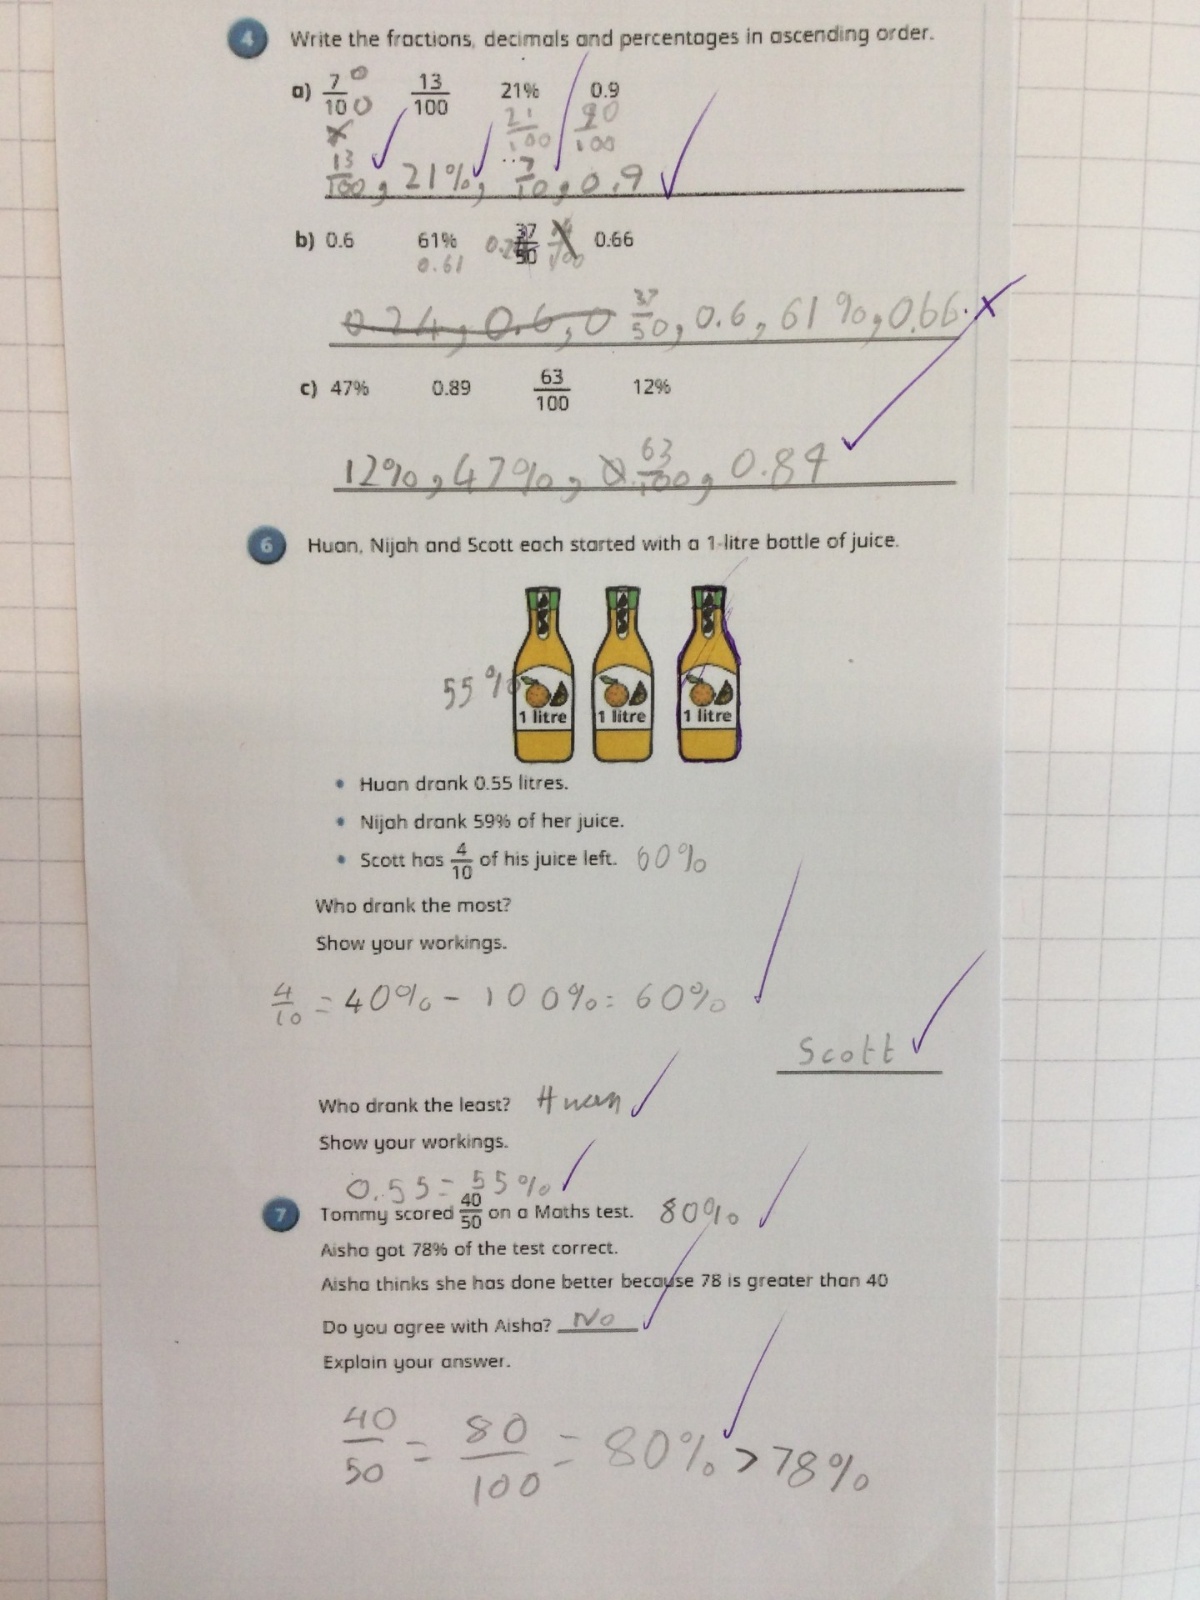 4 Write the fractions, decimals and percentages in ascending order.
a) 7/10 13/100 21% 0.9
0 0 21/100 90/100
13/100, 21%, 7/10, 0.9
b) 0.6 61% 37/50 0.66
0.61
0.24, 0.6, 0 37/50, 0.6, 61%, 0.66.
c) 47% 0.89 63/100 12%
12%, 47%, 63/100, 0.89
6 Huan, Nijah and Scott each started with a 1-litre bottle of juice.
55%
1 litre 1 litre 1 litre
• Huan drank 0.55 litres.
• Nijah drank 59% of her juice.
• Scott has 4/10 of his juice left. 60%
Who drank the most?
Show your workings.
4/10 = 40% - 100% = 60%
Scott
Who drank the least? Huan
Show your workings.
0.55 = 55%
7 Tommy scored 40/50 on a Maths test. 80%
Aisha got 78% of the test correct.
Aisha thinks she has done better because 78 is greater than 40
Do you agree with Aisha? No
Explain your answer.
40/50 = 80/100 = 80% > 78%